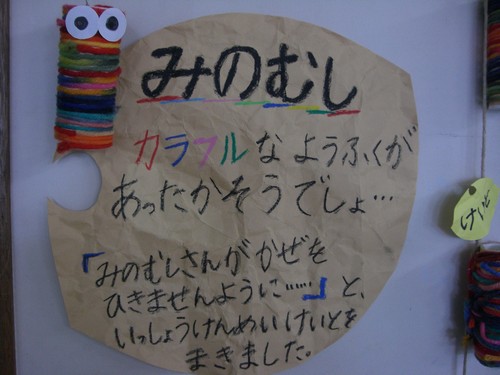 みのむし
カラフルなようふくが
あったかそうでしょ…
「みのむしさんがかぜを
ひきませんように……」と、
いっしょうけんめいけいとを
まきました。
けいと